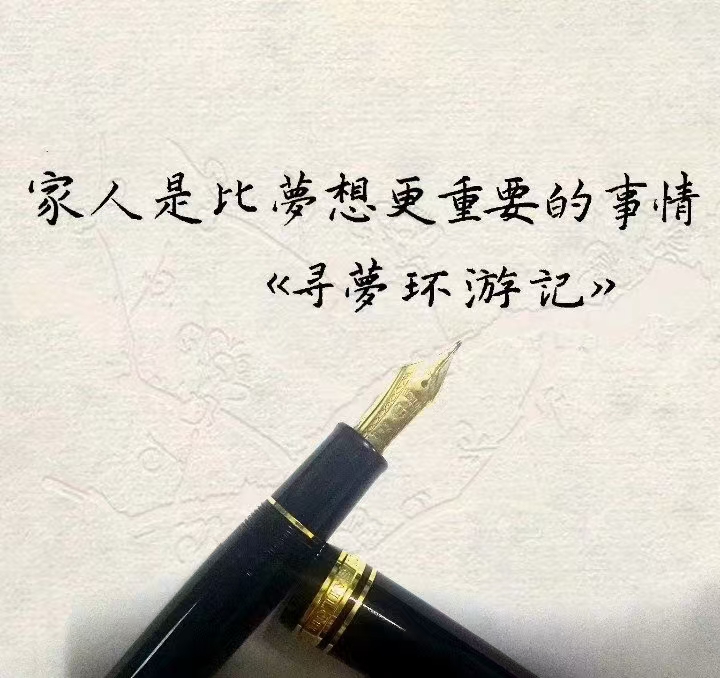 家人是比夢想更重要的事情
《寻夢环游記》